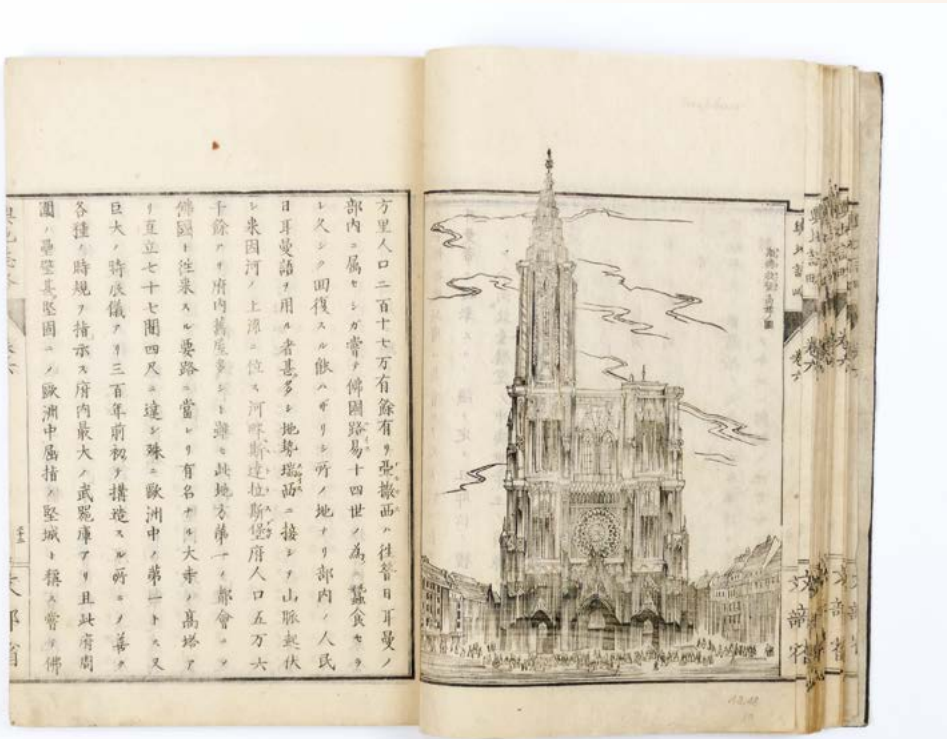 輿地誌畧 巻六 文部省
方里人口二百十七万有餘有リ亜撒西ハ往昔日耳曼ノ
部内ニ属セシガ嘗テ佛國路易十四世ノ為ニ蠶食セラ
レ久シク回復スル能ハザリシ所ノ地ナリ部内ノ人民
日耳曼語ヲ用ル者甚多シ地勢瑞西ニ接シテ山脈起伏
シ来因河ノ上源ニ位ス河畔斯達拉斯堡府人口五万六
千餘アリ府内舊屋多シト雖モ此地方第一ノ都會ニヲ
佛國ト徃来スル要路ニ當レリ有名ナル大寺ノ高塔ア
リ直立七十七間四尺ニ達シ殊ニ歐洲中ノ第一トス又
巨大ノ時辰儀アリ三百年前初テ搆造スル所ニノ善ク
各種ノ時規ヲ指示ス府内最大ノ武器庫アリ且此府周
圍ハ壘壁甚堅固ニノ歐洲中屈指ノ堅城ト稱ス嘗テ佛